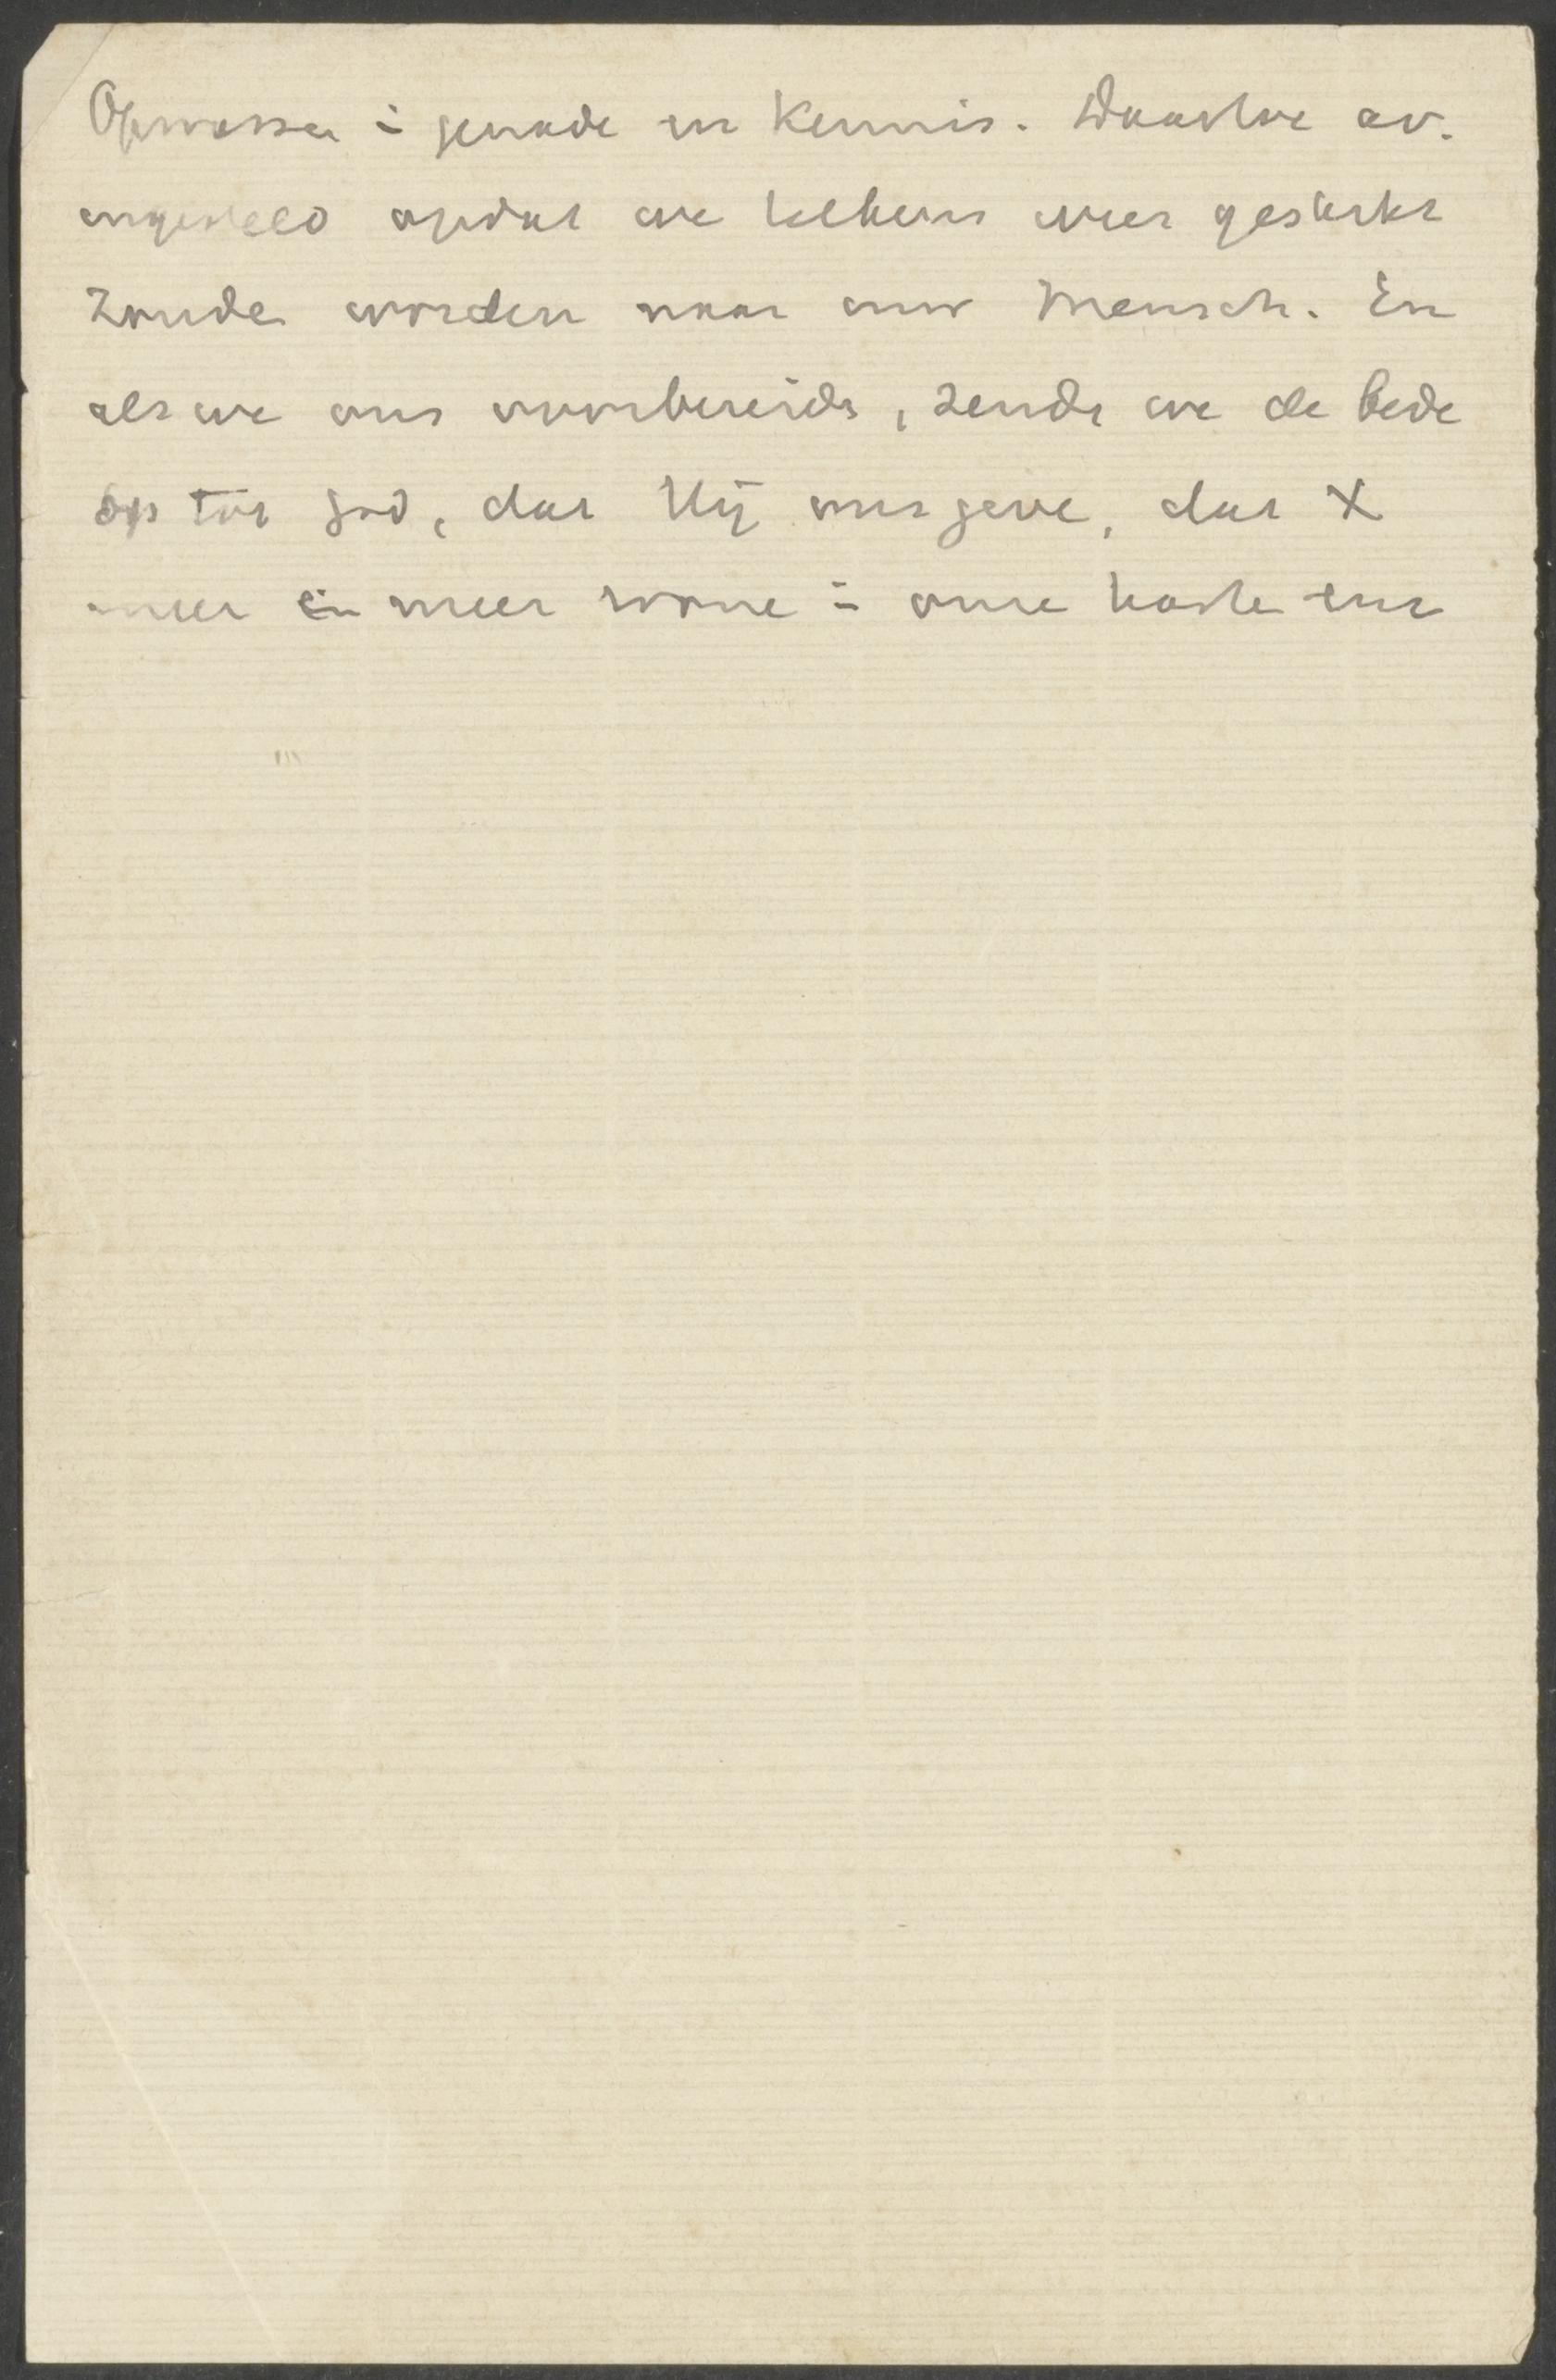 Opwassen i genade en Kennis. Daartoe av.
ingesteld opdat we telkens weer gesterkt
zoude worden naar inw Mensch. En
als we ons voorbereide, zende we de bede
op tot God, dat Hij ons geve, dat X
meer en meer wone i onze harte enz